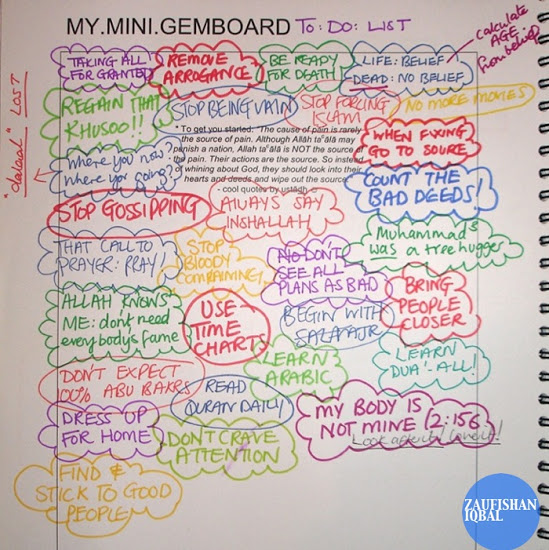 MY.MINI.GEMBOARD TO: DO: LIST
TAKING ALL
FOR GRANTED
REMOVE
ARROGANCE
BE READY
FOR DEATH
LIFE: BELIEF
DEAD: NO BELIEF
calculate
AGE
from belief
REGAIN THAT
KHUSOO!!
STOP BEING VAIN
STOP FORCING
ISLAM
NO MORE MOVIES
"dalaal" LOST
* To get you started: "The cause of pain is rarely
the source of pain. Although Allāh taʿālā may
perish a nation, Allah taʿālā is NOT the source of
the pain. Their actions are the source. So instead
of whining about God, they should look into their
hearts and deeds and wipe out the source."
- cool quotes by ustādh
WHEN FIXING
GO TO SOURCE
Where you now?
Where you going?
COUNT THE
BAD DEEDS!
STOP GOSSIPPING
ALWAYS SAY
INSHALLAH
Muhammad s
was a tree hugger
THAT CALL TO
PRAYER: PRAY!
STOP
BLOODY
COMPLAINING!
NO DON'T
SEE ALL
PLANS AS BAD
BRING
PEOPLE
CLOSER
ALLAH KNOWS
ME: don't need
everybody's fame
USE
TIME
CHARTS
BEGIN WITH
LEARN
DUA'-ALL!
LEARN
ARABIC
DON'T EXPECT
100% ABU BAKRS
READ
QURAN DAILY!
MY BODY IS
NOT MINE (2:156
Look after it
DRESS UP
FOR HOME
DON'T CRAVE
ATTENTION
FIND &
STICK TO GOOD
PEOPLE
ZAUFISHAN
IQBAL